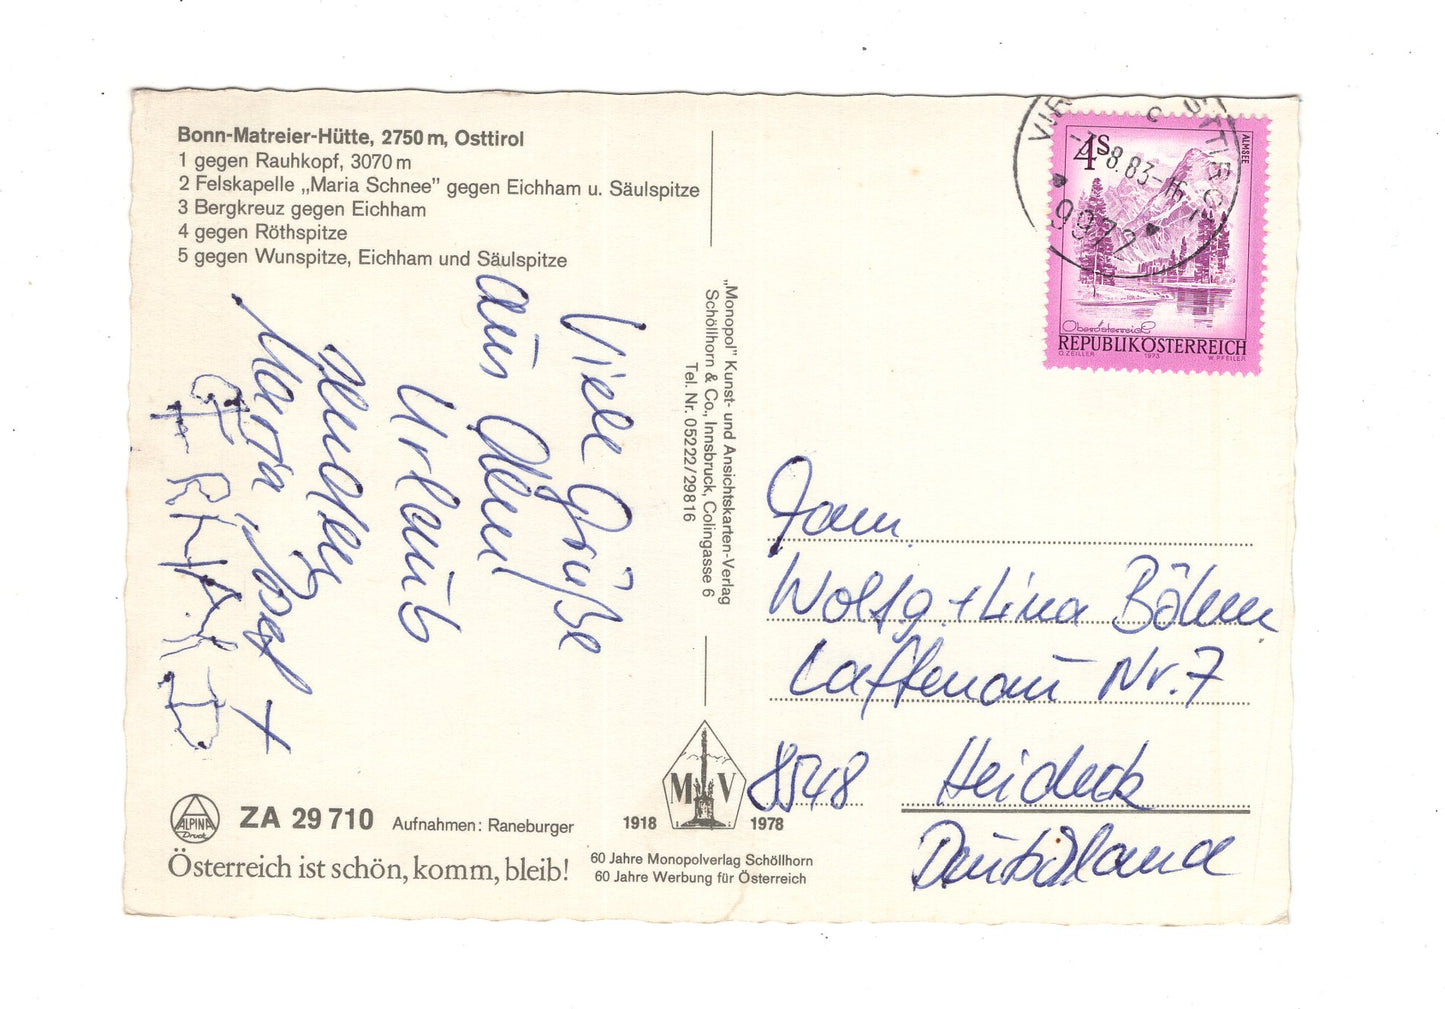 Bonn-Matreier-Hütte, 2750 m, Osttirol
1 gegen Rauhkopf, 3070 m
2 Felskapelle „Maria Schnee” gegen Eichham u. Säulspitze
3 Bergkreuz gegen Eichham
4 gegen Röthspitze
5 gegen Wunspitze, Eichham und Säulspitze
Viele Grüße
aus dem
Urlaub
senden
Maria, Josef +
GERHARD
„Monopol” Kunst- und Ansichtskarten-Verlag
Schöllhorn & Co., Innsbruck, Colingasse 6
Tel. Nr. 05222/29816
8.83-16
9972
4S
ALMSEE
Oberösterreich
REPUBLIK ÖSTERREICH
O. ZEILER 1973 W. PFEILER
Fam.
Wolfg. + Lina Böhm
Laffenau Nr. 7
8548 Heideck
Deutschland
ALPINA
Druck
ZA 29 710 Aufnahmen: Raneburger
Österreich ist schön, komm, bleib!
M V
1918 1978
60 Jahre Monopolverlag Schöllhorn
60 Jahre Werbung für Österreich